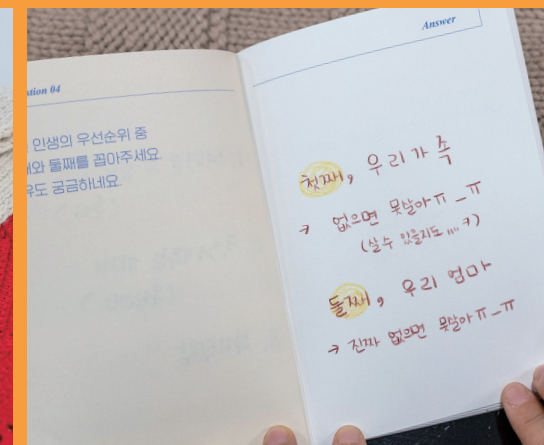 stion 04
인생의 우선순위 중
와 둘째를 꼽아주세요
유도 궁금하네요.
Answer
첫째, 우리가족
→ 없으면 못살아 ㅠ_ㅠ
(살수 있을지도 ,,,, ?)
둘째, 우리 엄마
→ 진짜 없으면 못살아 ㅠ_ㅠ